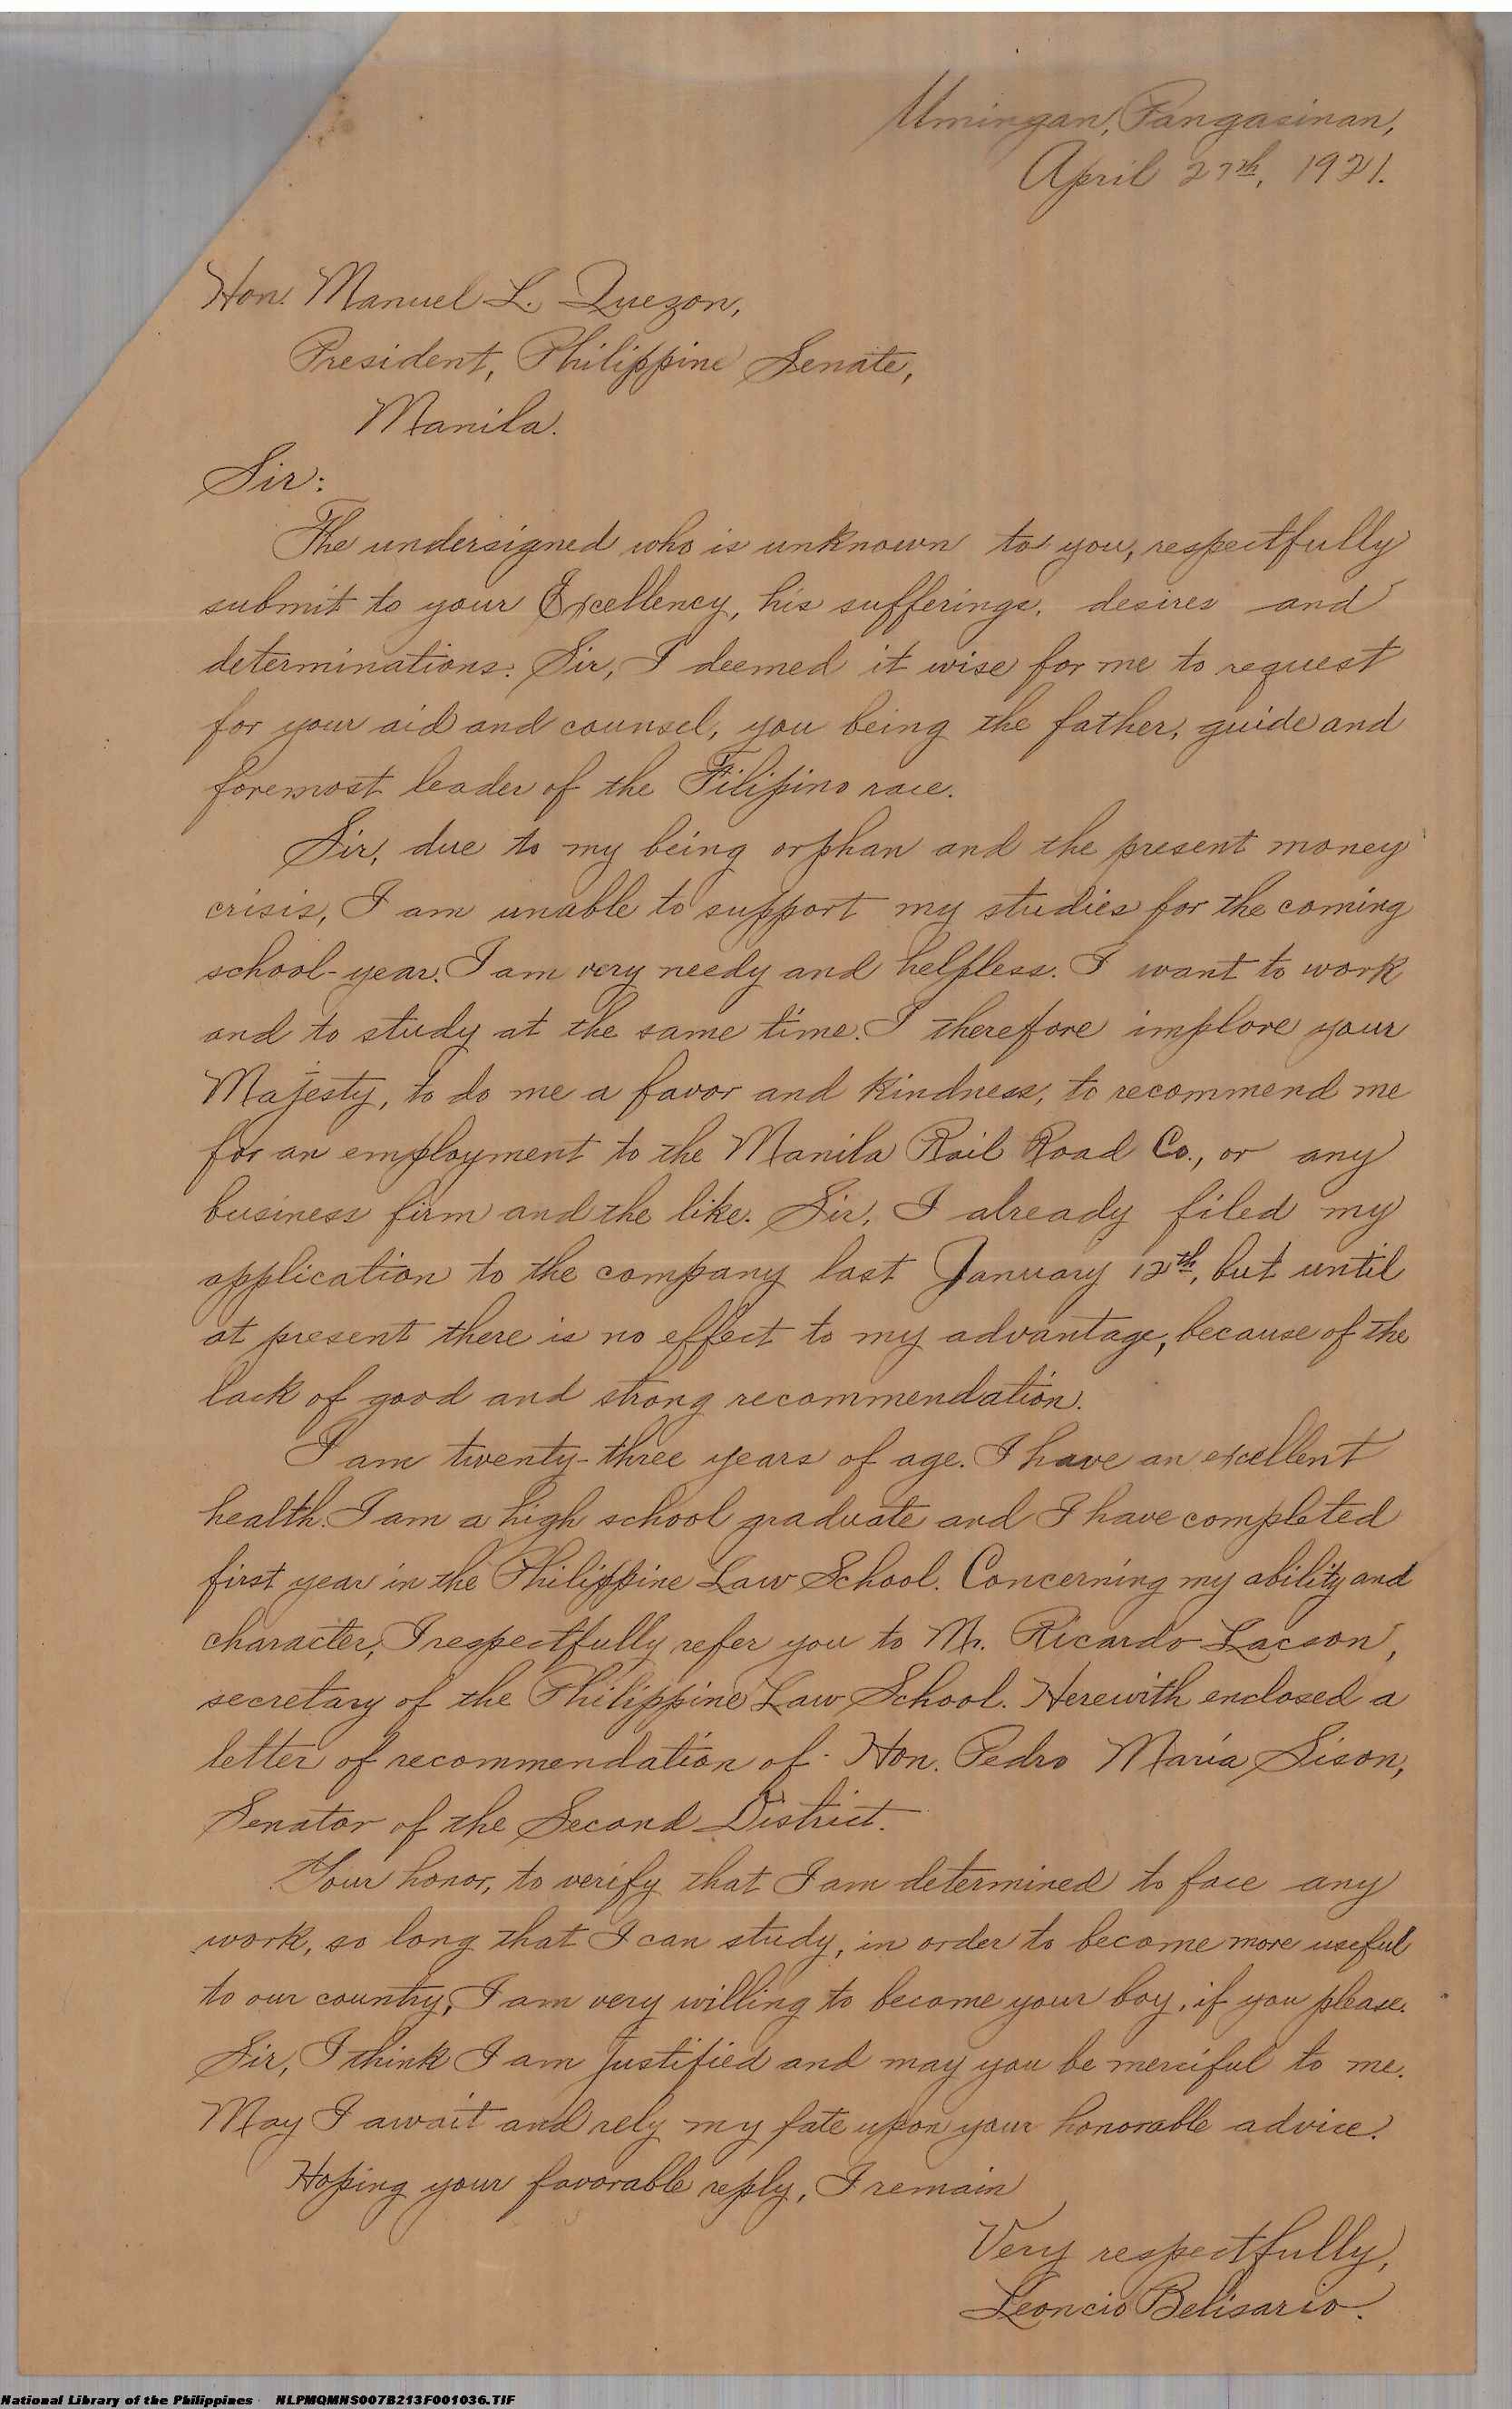 Umingan, Pangasinan,
April 27th, 1921.
Hon. Manuel L. Quezon,
President, Philippine Senate,
Manila.
Sir:
The undersigned who is unknown to you, respectfully
submit to your Excellency, his sufferings, desires and
determinations. Sir, I deemed it wise for me to request
for your aid and counsel, you being the father, guide and
foremost leader of the Filipino race.
Sir, due to my being orphan and the present money
crisis, I am unable to support my studies for the coming
school-year. I am very needy and helpless. I want to work
and to study at the same time. I therefore implore your
Majesty, to do me a favor and kindness, to recommend me
for an employment to the Manila Rail Road Co., or any
business firm and the like. Sir, I already filed my
application to the company last January 12th, but until
at present there is no effect to my advantage, because of the
lack of good and strong recommendation.
I am twenty-three years of age. I have an excellent
health. I am a high school graduate and I have completed
first year in the Philippine Law School. Concerning my ability and
character, I respectfully refer you to Mr. Ricardo Lacson,
secretary of the Philippine Law School. Herewith enclosed a
letter of recommendation of Hon. Pedro Maria Sison,
Senator of the Second District.
Your honor, to verify that I am determined to face any
work, so long that I can study, in order to become more useful
to our country, I am very willing to become your boy, if you please.
Sir, I think I am justified and may you be merciful to me.
May I await and rely my fate upon your honorable advice.
Hoping your favorable reply, I remain
Very respectfully,
Leoncio Belisario.
National Library of the Philippines NLPMQMNS007B213F001036.TIF